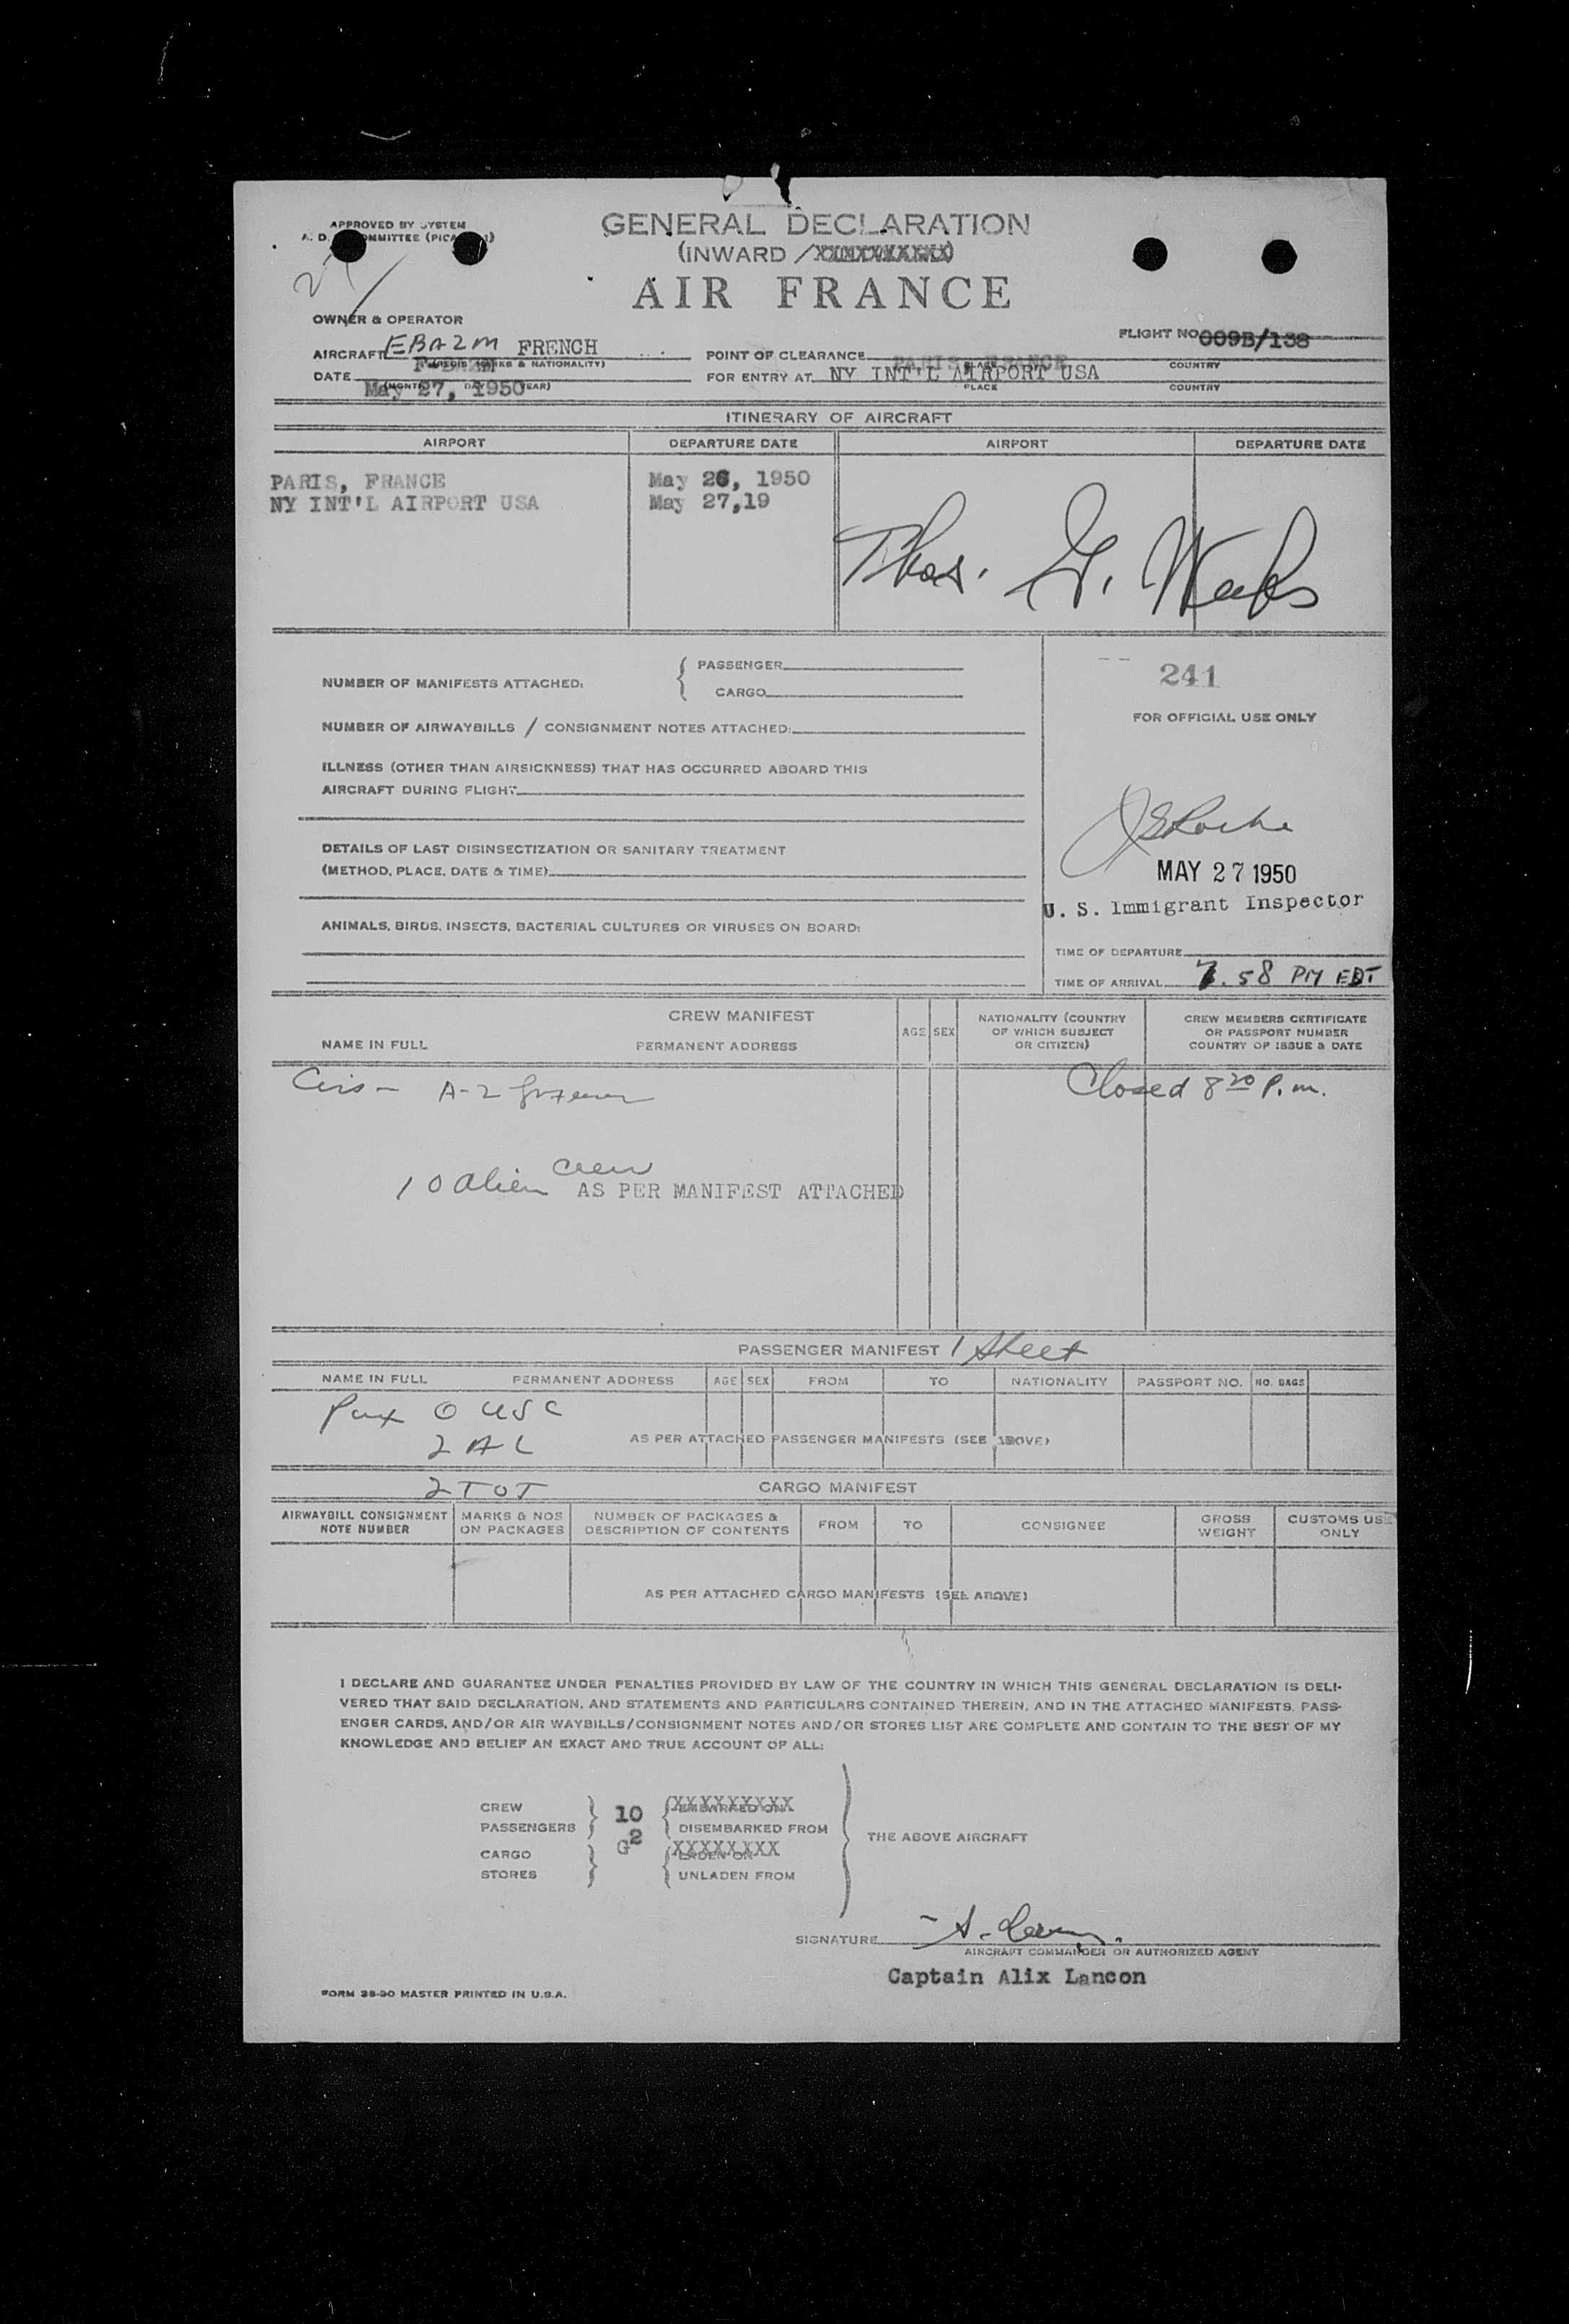 APPROVED BY SYSTEM
COMMITTEE
GENERAL DECLARATION
(INWARD /
AIR FRANCE
OWNER & OPERATOR
FLIGHT NO 009B/138
AIRCRAFT EBAZM FRENCH
POINT OF CLEARANCE PARIS, FRANCE
PLACE COUNTRY
DATE May 27, 1950
FOR ENTRY AT NY INT'L AIRPORT USA
PLACE COUNTRY
ITINERARY OF AIRCRAFT
AIRPORT DEPARTURE DATE AIRPORT DEPARTURE DATE
PARIS, FRANCE May 26, 1950
NY INT'L AIRPORT USA May 27,19
Thos. G. Weeks
NUMBER OF MANIFESTS ATTACHED: PASSENGER
CARGO
241
FOR OFFICIAL USE ONLY
NUMBER OF AIRWAYBILLS / CONSIGNMENT NOTES ATTACHED:
ILLNESS (OTHER THAN AIRSICKNESS) THAT HAS OCCURRED ABOARD THIS
AIRCRAFT DURING FLIGHT
DETAILS OF LAST DISINSECTIZATION OR SANITARY TREATMENT
(METHOD, PLACE, DATE & TIME)
MAY 27 1950
U. S. Immigrant Inspector
ANIMALS, BIRDS, INSECTS, BACTERIAL CULTURES OR VIRUSES ON BOARD:
TIME OF DEPARTURE
TIME OF ARRIVAL 7.58 PM EDT
CREW MANIFEST
NAME IN FULL PERMANENT ADDRESS AGE SEX NATIONALITY (COUNTRY OF WHICH SUBJECT OR CITIZEN) CREW MEMBERS CERTIFICATE OR PASSPORT NUMBER COUNTRY OF ISSUE & DATE
A-2
Closed 8 20 P.m.
10 alien crew AS PER MANIFEST ATTACHED
PASSENGER MANIFEST 1 Sheet
NAME IN FULL PERMANENT ADDRESS AGE SEX FROM TO NATIONALITY PASSPORT NO. NO. BAGS
Pax 0 USC
2 AL
AS PER ATTACHED PASSENGER MANIFESTS (SEE ABOVE)
2 TOT
CARGO MANIFEST
AIRWAYBILL CONSIGNMENT NOTE NUMBER MARKS & NOS ON PACKAGES NUMBER OF PACKAGES & DESCRIPTION OF CONTENTS FROM TO CONSIGNEE GROSS WEIGHT CUSTOMS USE ONLY
AS PER ATTACHED CARGO MANIFESTS (SEE ABOVE)
I DECLARE AND GUARANTEE UNDER PENALTIES PROVIDED BY LAW OF THE COUNTRY IN WHICH THIS GENERAL DECLARATION IS DELI-
VERED THAT SAID DECLARATION, AND STATEMENTS AND PARTICULARS CONTAINED THEREIN, AND IN THE ATTACHED MANIFESTS, PASS-
ENGER CARDS, AND/OR AIR WAYBILLS/CONSIGNMENT NOTES AND/OR STORES LIST ARE COMPLETE AND CONTAIN TO THE BEST OF MY
KNOWLEDGE AND BELIEF AN EXACT AND TRUE ACCOUNT OF ALL:
CREW 10 EMBARKED ON
PASSENGERS 2 DISEMBARKED FROM
THE ABOVE AIRCRAFT
CARGO G LADEN ON
STORES UNLADEN FROM
SIGNATURE
AIRCRAFT COMMANDER OR AUTHORIZED AGENT
Captain Alix Lancon
FORM 38-30 MASTER PRINTED IN U.S.A.